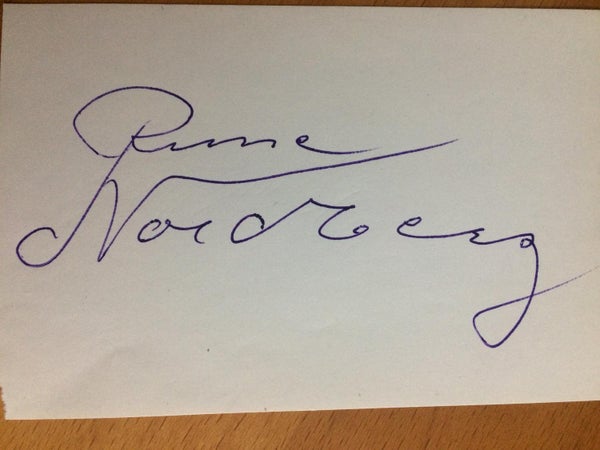 Rune
Nordberg